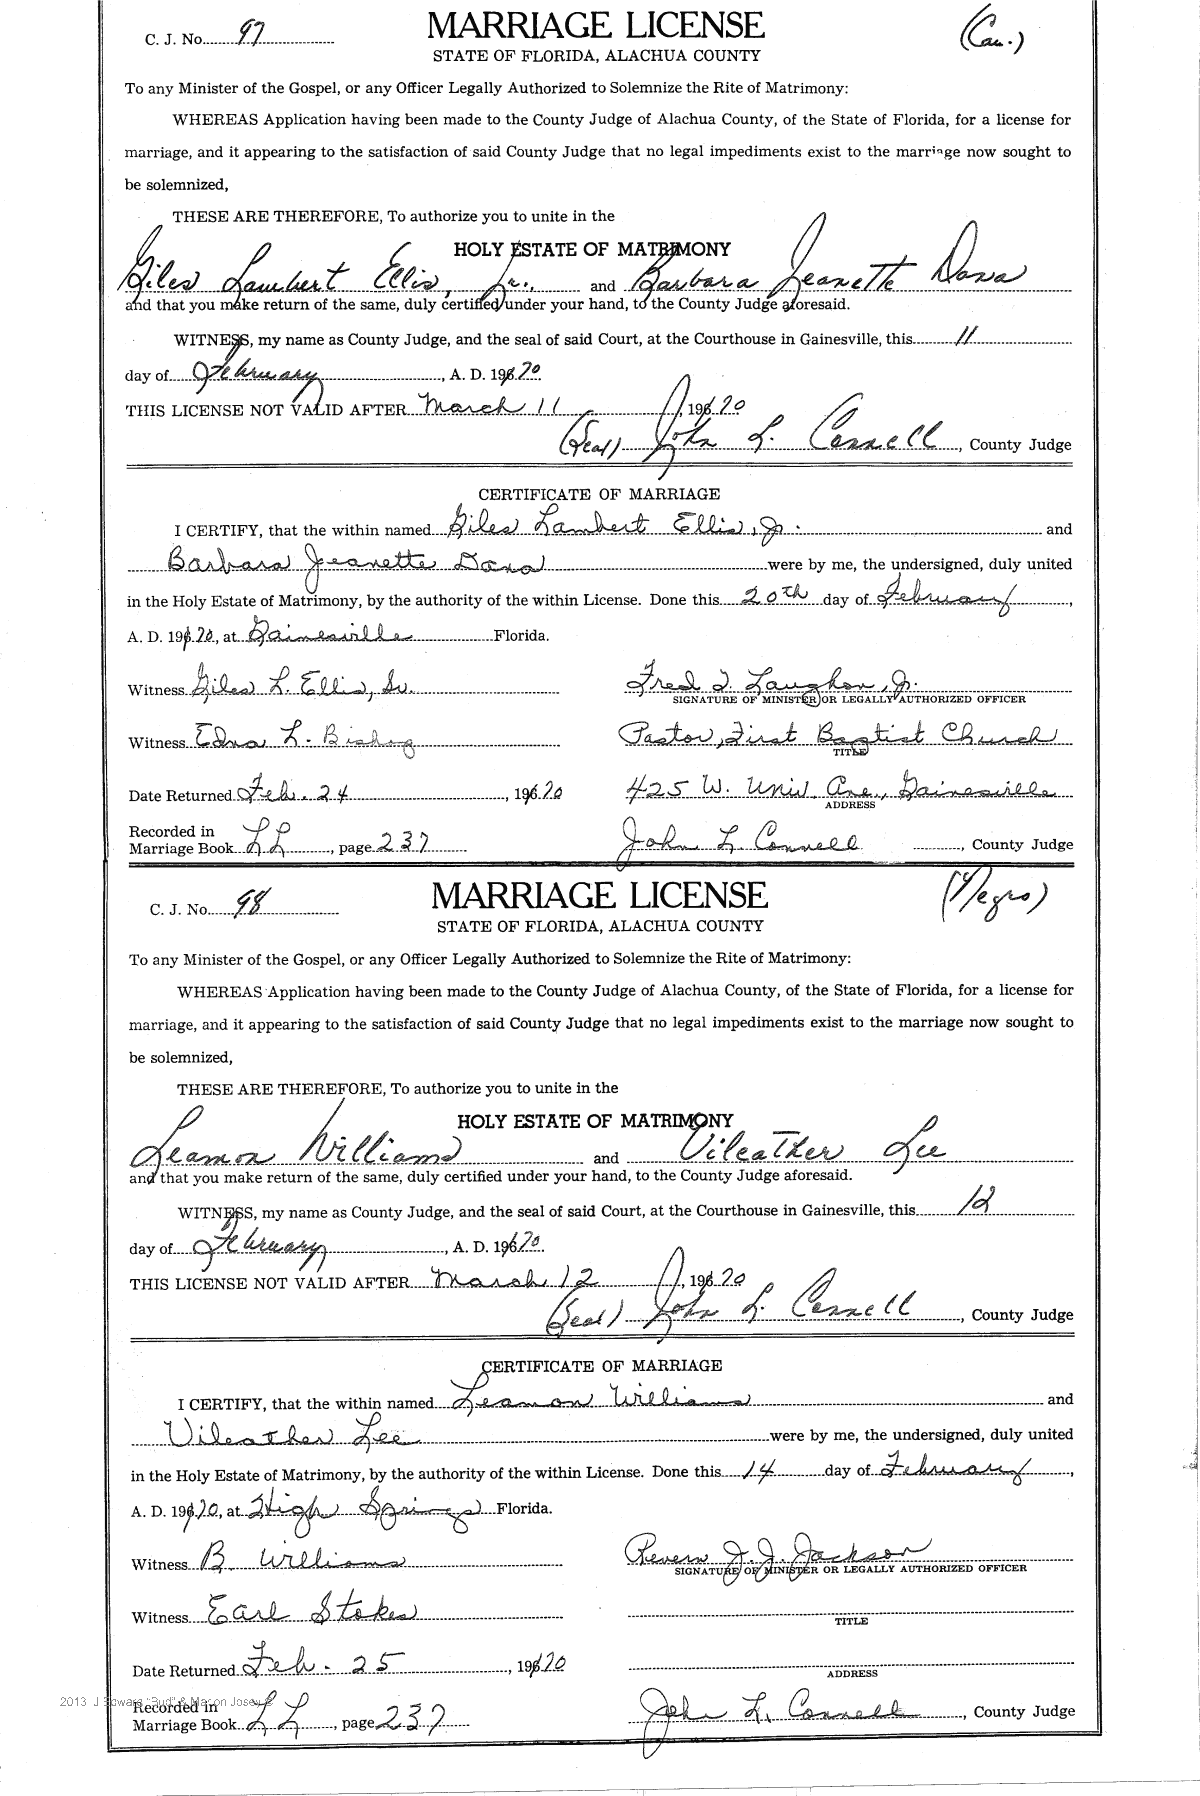 C. J. No. 97 MARRIAGE LICENSE (Cau.)
STATE OF FLORIDA, ALACHUA COUNTY
To any Minister of the Gospel, or any Officer Legally Authorized to Solemnize the Rite of Matrimony:
WHEREAS Application having been made to the County Judge of Alachua County, of the State of Florida, for a license for
marriage, and it appearing to the satisfaction of said County Judge that no legal impediments exist to the marriage now sought to
be solemnized,
THESE ARE THEREFORE, To authorize you to unite in the
HOLY ESTATE OF MATRIMONY
Giles Lambert Ellis, Jr., and Barbara Jeanette Dana
and that you make return of the same, duly certified under your hand, to the County Judge aforesaid.
WITNESS, my name as County Judge, and the seal of said Court, at the Courthouse in Gainesville, this 11
day of February, A. D. 196 70
THIS LICENSE NOT VALID AFTER March 11, 196 70
(Seal) John L. Connell, County Judge
CERTIFICATE OF MARRIAGE
I CERTIFY, that the within named Giles Lambert Ellis, Jr. and
Barbara Jeanette Dana were by me, the undersigned, duly united
in the Holy Estate of Matrimony, by the authority of the within License. Done this 20th day of February,
A. D. 196 70, at Gainesville Florida.
Witness Giles L. Ellis, Sr. Fred T. Laughon, Jr.
SIGNATURE OF MINISTER OR LEGALLY AUTHORIZED OFFICER
Witness Edna L. Bishop Pastor, First Baptist Church
TITLE
Date Returned Feb. 24, 196 70 425 W. Univ. Ave., Gainesville
ADDRESS
Recorded in
Marriage Book LL, page 237 John L. Connell, County Judge
C. J. No. 98 MARRIAGE LICENSE (Negro)
STATE OF FLORIDA, ALACHUA COUNTY
To any Minister of the Gospel, or any Officer Legally Authorized to Solemnize the Rite of Matrimony:
WHEREAS Application having been made to the County Judge of Alachua County, of the State of Florida, for a license for
marriage, and it appearing to the satisfaction of said County Judge that no legal impediments exist to the marriage now sought to
be solemnized,
THESE ARE THEREFORE, To authorize you to unite in the
HOLY ESTATE OF MATRIMONY
Leamon Williams and Vileather Lee
and that you make return of the same, duly certified under your hand, to the County Judge aforesaid.
WITNESS, my name as County Judge, and the seal of said Court, at the Courthouse in Gainesville, this 12
day of February, A. D. 196 70
THIS LICENSE NOT VALID AFTER March 12, 196 70
(Seal) John L. Connell, County Judge
CERTIFICATE OF MARRIAGE
I CERTIFY, that the within named Leamon Williams and
Vileather Lee were by me, the undersigned, duly united
in the Holy Estate of Matrimony, by the authority of the within License. Done this 14 day of February,
A. D. 196 70, at High Springs Florida.
Witness B. Williams Revern J. J. Jackson
SIGNATURE OF MINISTER OR LEGALLY AUTHORIZED OFFICER
Witness Earl Stokes
TITLE
Date Returned Feb. 25, 196 70
ADDRESS
2013 J Edward "Bud" & Macon Josey ©
Recorded in
Marriage Book LL, page 237 John L. Connell, County Judge